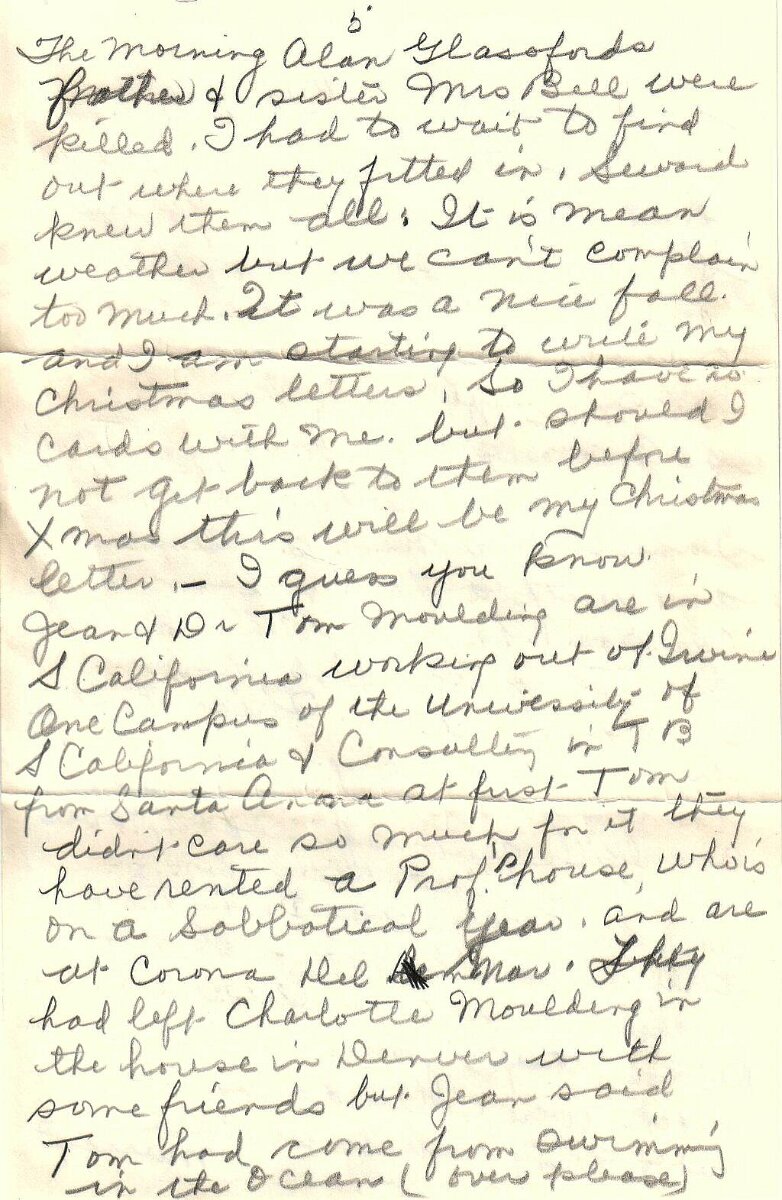 5
The Morning Alan Glassfords
Brother & sister Mrs Bell were
killed. I had to wait to find
out where they fitted in. Seward
knew them all. It is mean
weather but we can't complain
too much. It was a nice fall.
and I am starting to write my
Christmas letters. So I have no
cards with me. but should I
not get back to them before
Xmas this will be my Christmas
letter. — I guess you know
Jean & Dr Tom Moulding are in
S California working out of Irvine
One Campus of the University of
S California & Consulting in TB
from Santa Anna at first Tom
didn't care so much for it they
have rented a Prof.'s house, who's
on a Sabbatical Year. and are
at Corona Del Mar. They
had left Charlotte Moulding in
the house in Denver with
some friends but Jean said
Tom had come from swimming
in the Ocean (over please)